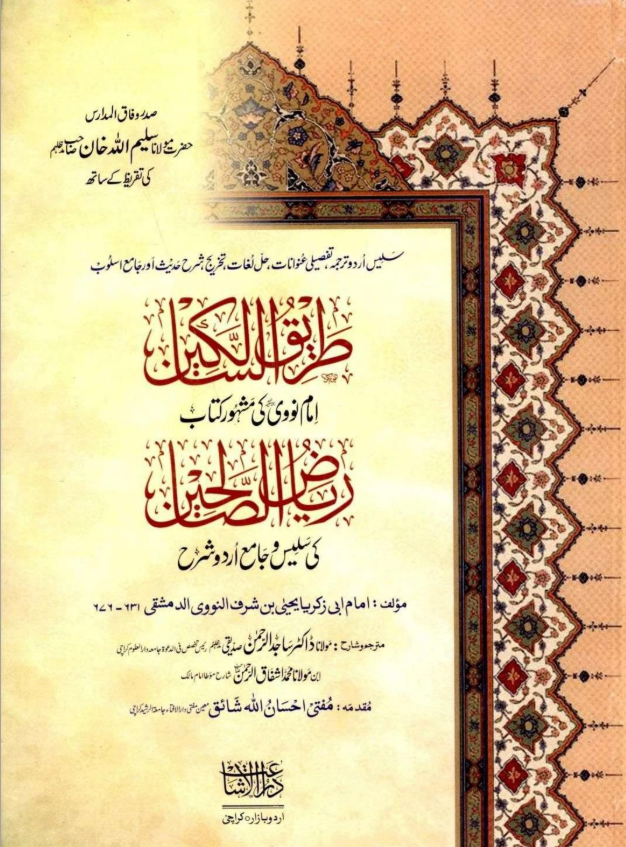 صدر وفاق المدارس
حضرت مولانا سلیم اللہ خان صاحب مدظلہم
کی تقریظ کے ساتھ
سلیس اُردو ترجمہ، تفصیلی عنوانات، حل لغات، تخریج، شرح حدیث اور جامع اسلوب
طریق السالکین
امام نووی کی مشہور کتاب
ریاض الصالحین
کی سلیس و جامع اُردو شرح
مؤلف: امام ابی زکریا یحییٰ بن شرف النووی الدمشقی ۶۳۱ - ۶۷۶
مترجم و شارح: مولانا ڈاکٹر ساجد الرحمٰن صدیقی مدظلہم رئیس تخصص فی الدعوۃ جامعہ دارالعلوم کراچی
ابن مولانا محمد اشفاق الرحمٰن شارح مؤطا امام مالک
مُقدمہ: مُفتی احسانُ اللہ شائق معین مفتی دارالافتاء جامعۃ الرشید کراچی
دارالاشاعت
اردو بازار ○ کراچی